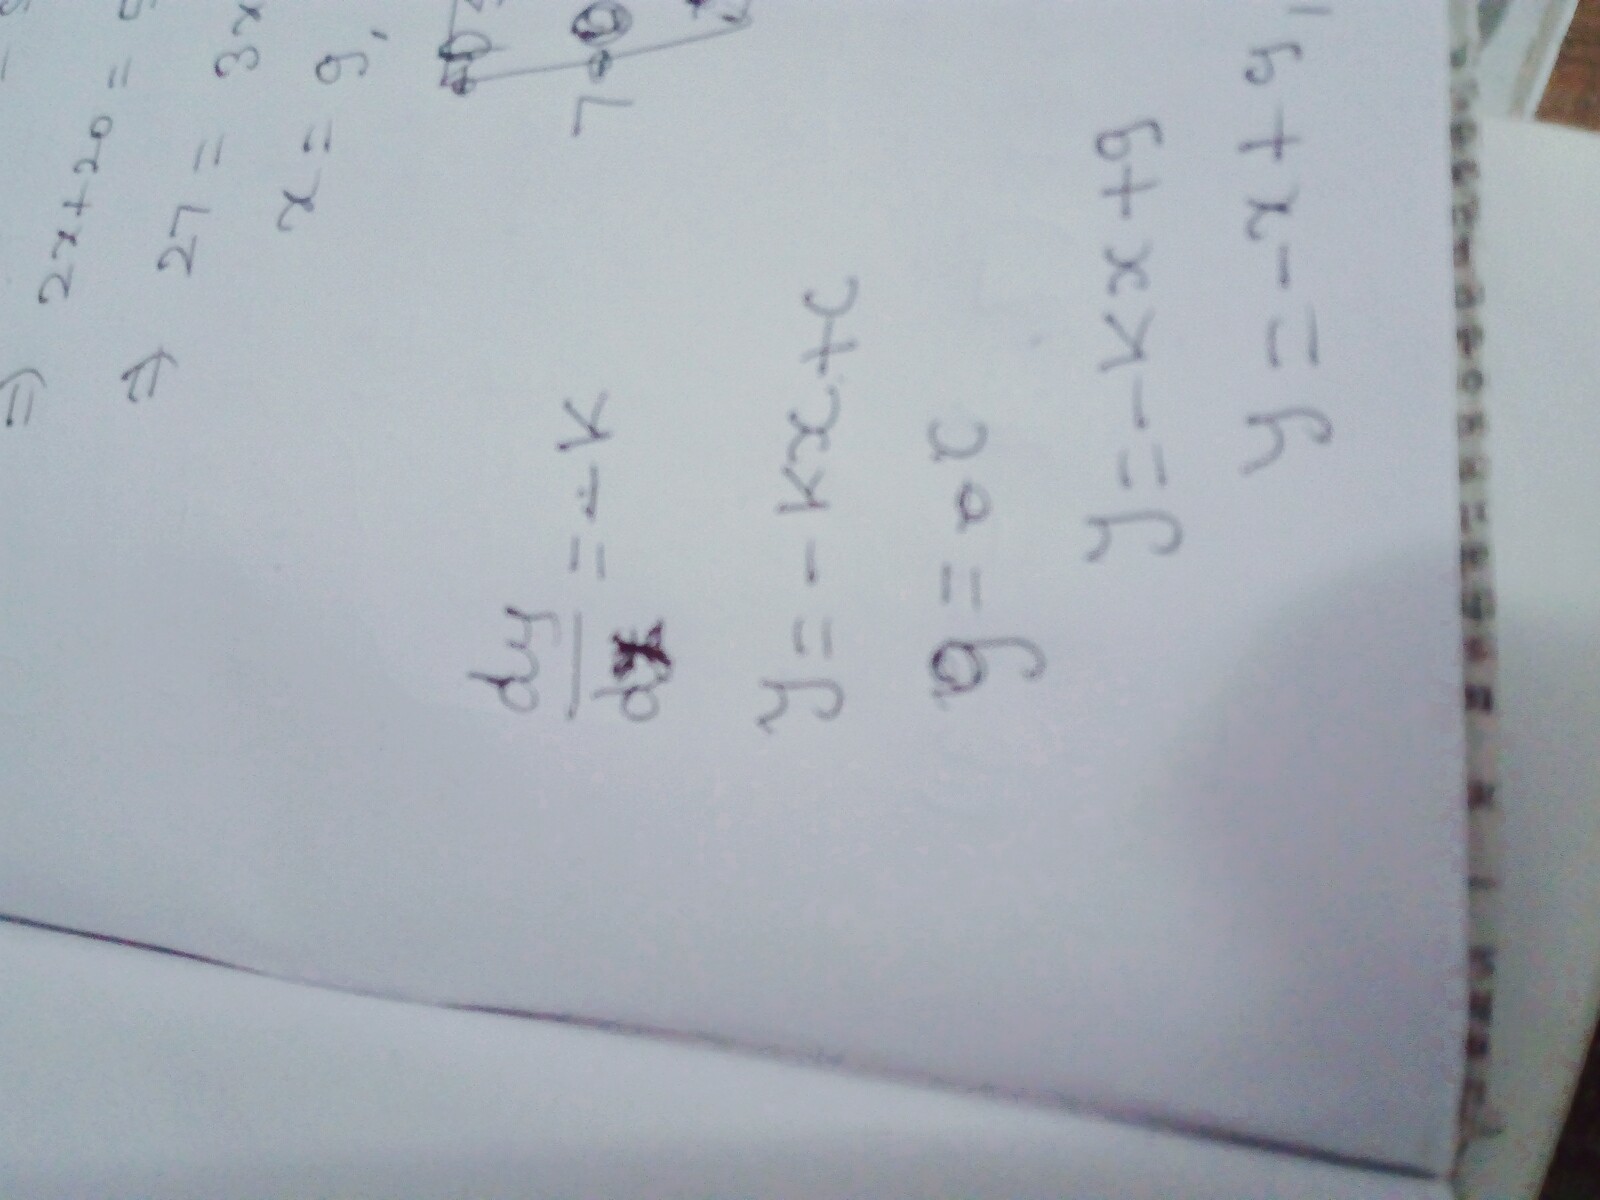 ⇒ 2x+20 =
⇒ 27 = 3x
x = 9,
dy/dx = -k
y = - kx + c
9 = 0 c
y = - kx + 9
y = - x + 9,